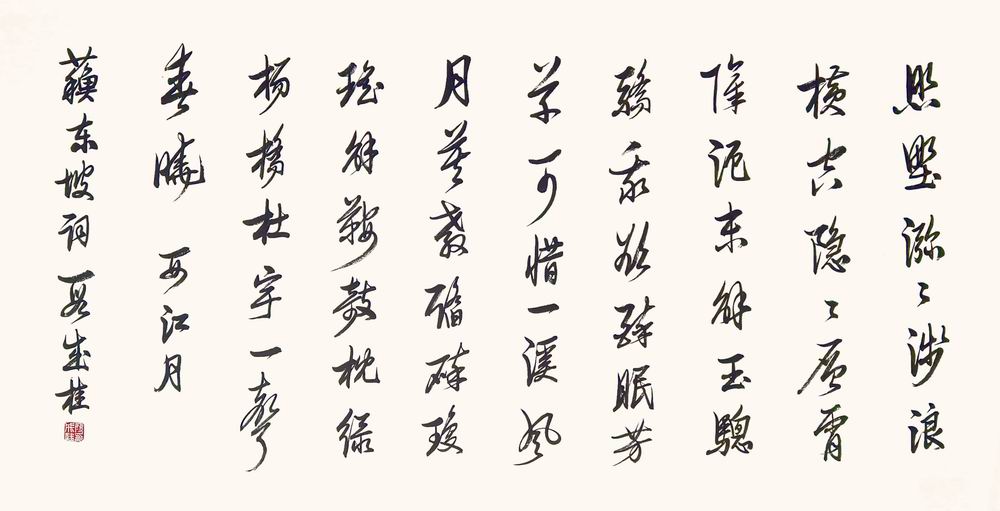 照野㳽〻浅浪
横空隐〻层霄
障泥未解玉驄
驕我欲醉眠芳
草可惜一溪风
月莫教踏碎瓊
瑶解鞍敧枕绿
杨橋杜宇一声
春曉 西江月
蘓东坡词 段成桂